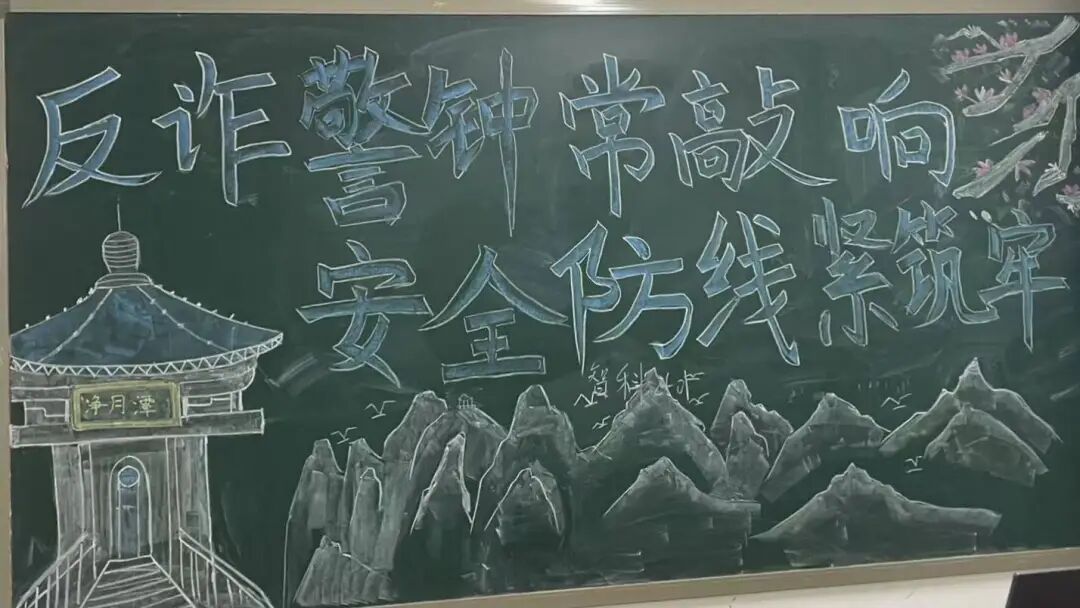 反诈警钟常敲响
安全防线紧筑牢
净月潭
智科